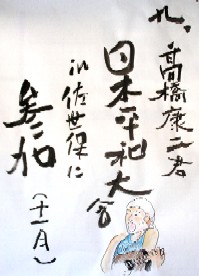 九、高橋康二君
日本平和大会
in佐世保に
参加
（十一月）